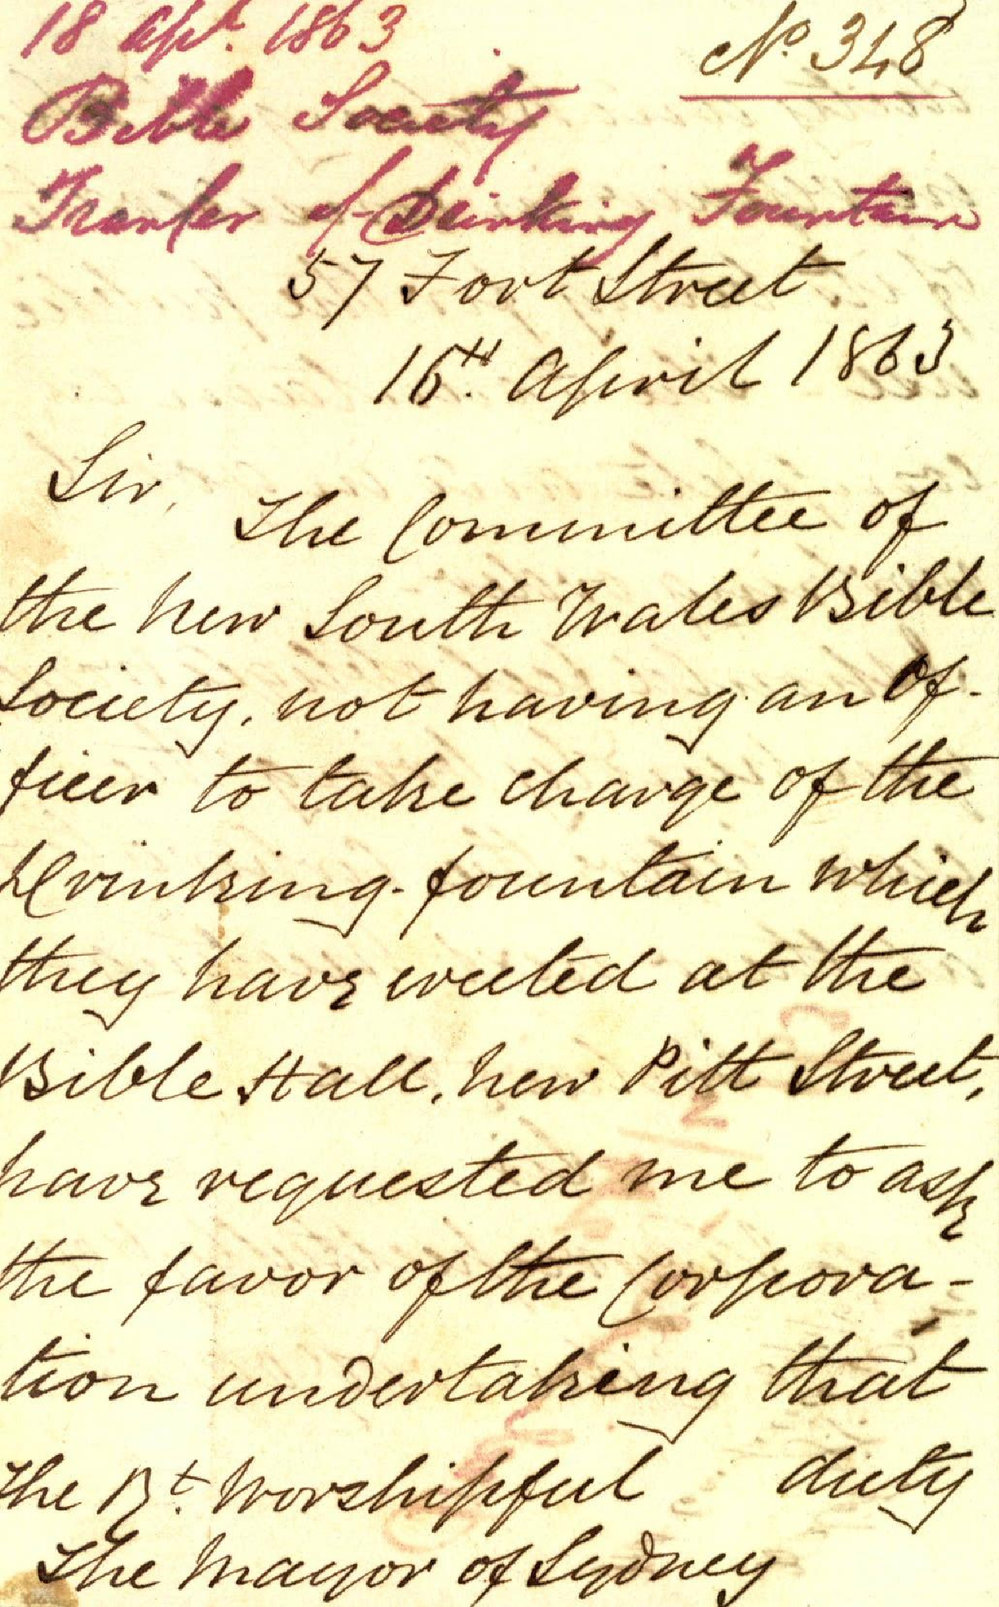 18 Apl. 1863
No. 348
Bible Society
Tranfer of Drinking Fountain
57 Fort Street.
16th. April 1863
Sir,
The Committee of
the New South Wales Bible
Society, not having an Of-
ficer to take charge of the
Drinking-fountain which
they have erected at the
Bible Hall, New Pitt Street,
have requested me to ask
the favor of the Corpora-
tion undertaking that
duty
The Rt. Worshipful
The Mayor of Sydney